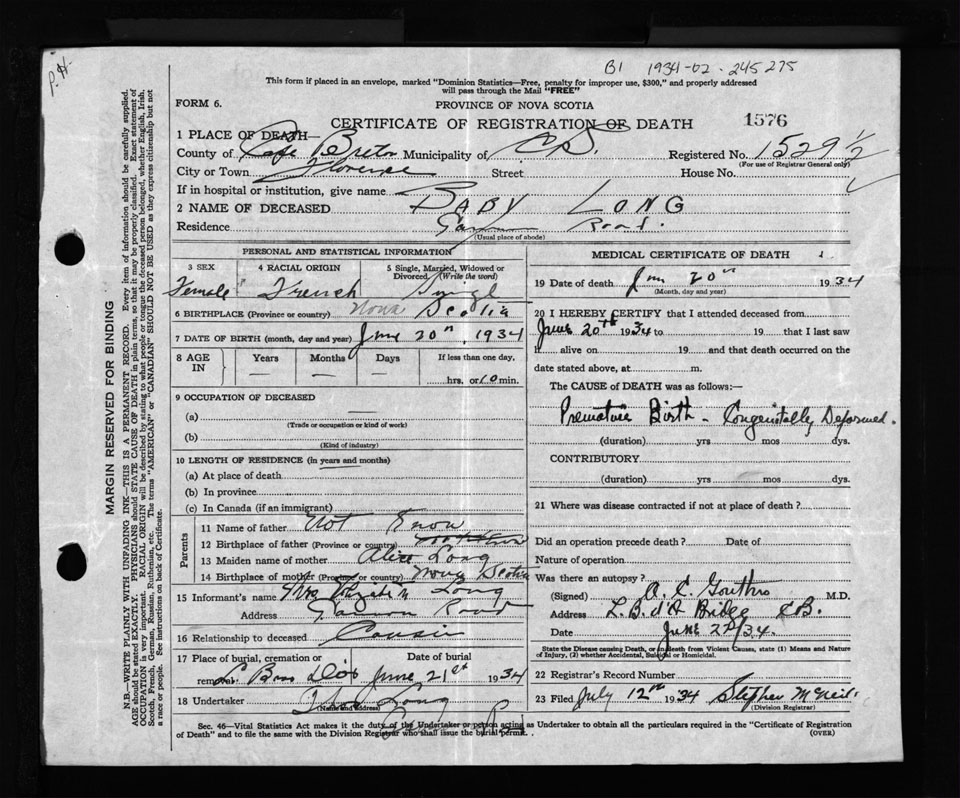 B1 1934-02-245275
This form if placed in an envelope, marked "Dominion Statistics—Free, penalty for improper use, $300," and properly addressed
will pass through the Mail "FREE"
FORM 6.
PROVINCE OF NOVA SCOTIA
CERTIFICATE OF REGISTRATION OF DEATH 1576
1 PLACE OF DEATH—
County of Cape Breton Municipality of C.B. Registered No. 1529 1/2
(For use of Registrar General only)
City or Town Florence Street House No.
If in hospital or institution, give name
2 NAME OF DECEASED BABY LONG
Residence Gannon Road.
(Usual place of abode)
PERSONAL AND STATISTICAL INFORMATION
3 SEX 4 RACIAL ORIGIN 5 Single, Married, Widowed or
Divorced (Write the word)
Female French Single
6 BIRTHPLACE (Province or country) Nova Scotia
7 DATE OF BIRTH (month, day and year) June 20th, 1934
8 AGE IN Years Months Days If less than one day,
— — — hrs. or 10 min.
9 OCCUPATION OF DECEASED
(a) —
(Trade or occupation or kind of work)
(b)
(Kind of industry)
10 LENGTH OF RESIDENCE (in years and months)
(a) At place of death
(b) In province
(c) In Canada (if an immigrant)
Parents
11 Name of father Not Know
12 Birthplace of father (Province or country)
13 Maiden name of mother Alice Long
14 Birthplace of mother (Province or country) Nova Scotia
15 Informant's name Mrs Long
Address Gannon Road
16 Relationship to deceased Cousin
17 Place of burial, cremation or Date of burial
removal L Bras D'or June 21st 1934
18 Undertaker Long
(Name and address)
MEDICAL CERTIFICATE OF DEATH
19 Date of death June 20th 1934
(Month, day and year)
20 I HEREBY CERTIFY that I attended deceased from
June 20th 1934 to 19 that I last saw
h alive on 19 and that death occurred on the
date stated above, at m.
The CAUSE of DEATH was as follows:—
Premature Birth - Congenitally Deformed.
(duration) yrs mos dys.
CONTRIBUTORY
(duration) yrs mos dys.
21 Where was disease contracted if not at place of death?
Did an operation precede death? Date of
Nature of operation
Was there an autopsy?
(Signed) A. C. Gouthro M.D.
Address L. B. d'A Bridge C.B.
Date June 22/34.
State the Disease causing Death, or in death from Violent Causes, state (1) Means and Nature
of Injury, (2) whether Accidental, Suicidal or Homicidal.
22 Registrar's Record Number
23 Filed July 12th 1934 Stephen McNeil
(Division Registrar)
Sec. 46—Vital Statistics Act makes it the duty of the Undertaker or person acting as Undertaker to obtain all the particulars required in the "Certificate of Registration
of Death" and to file the same with the Division Registrar who shall issue the burial permit.
(OVER)
MARGIN RESERVED FOR BINDING
N.B.—WRITE PLAINLY WITH UNFADING INK—THIS IS A PERMANENT RECORD. Every item of information should be carefully supplied.
AGE should be stated EXACTLY. PHYSICIANS should STATE CAUSE OF DEATH in plain terms, so that it may be properly classified. Exact statement of
OCCUPATION is very important. RACIAL ORIGIN will be described by stating to what people or tongue the deceased person belonged, whether English, Irish,
Scotch, French, German, Russian, Ruthenian, etc. The terms "AMERICAN" or "CANADIAN" SHOULD NOT BE USED as they express citizenship but not
a race or people. See instructions on back of Certificate.